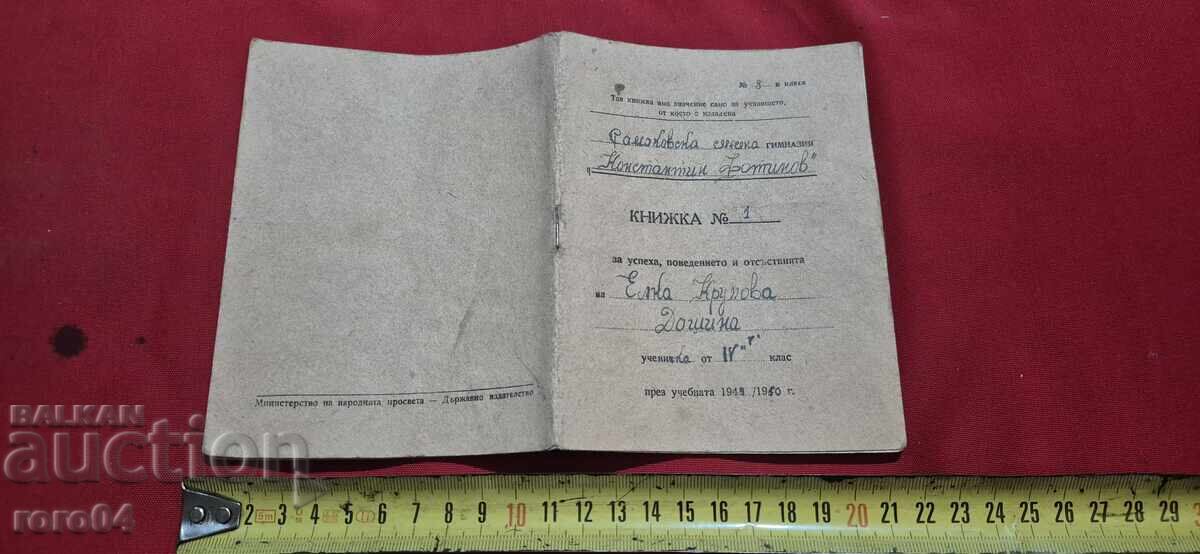 № 8 в класа
Тая книжка има значение само за училището,
от което е издадена
Самоковска смесена гимназия
"Константин Фотинов"
КНИЖКА № 1
за успеха, поведението и отсъствията
на Елка Крумова
Дошина
ученичка от IV клас
през учебната 1949/1950 г.
Министерство на народната просвета — Държавно издателство
BALKAN
auction
roro04
2 3 4 5 6 7 8 9 10 11 12 13 14 15 16 17 18 19 20 21 22 23 24 25 26 27 28 29